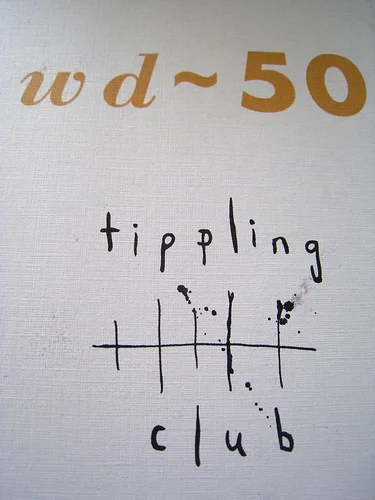 wd~50
tippling
club